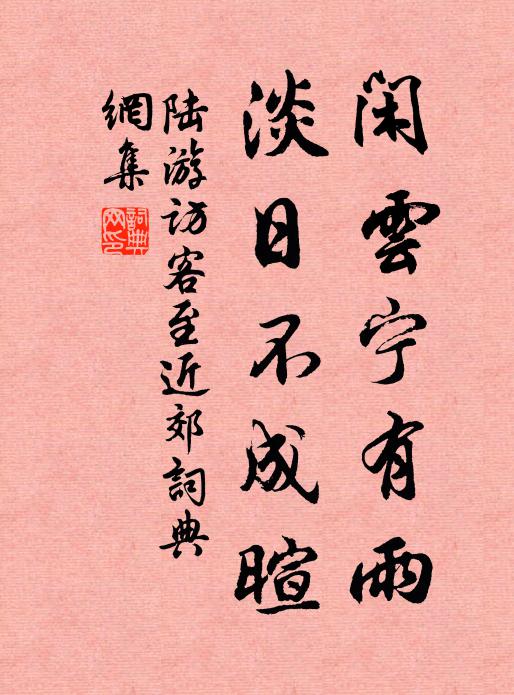 闲雲宁有雨
淡日不成暄
陆游访客至近郊詞典
網集
詞典
网印